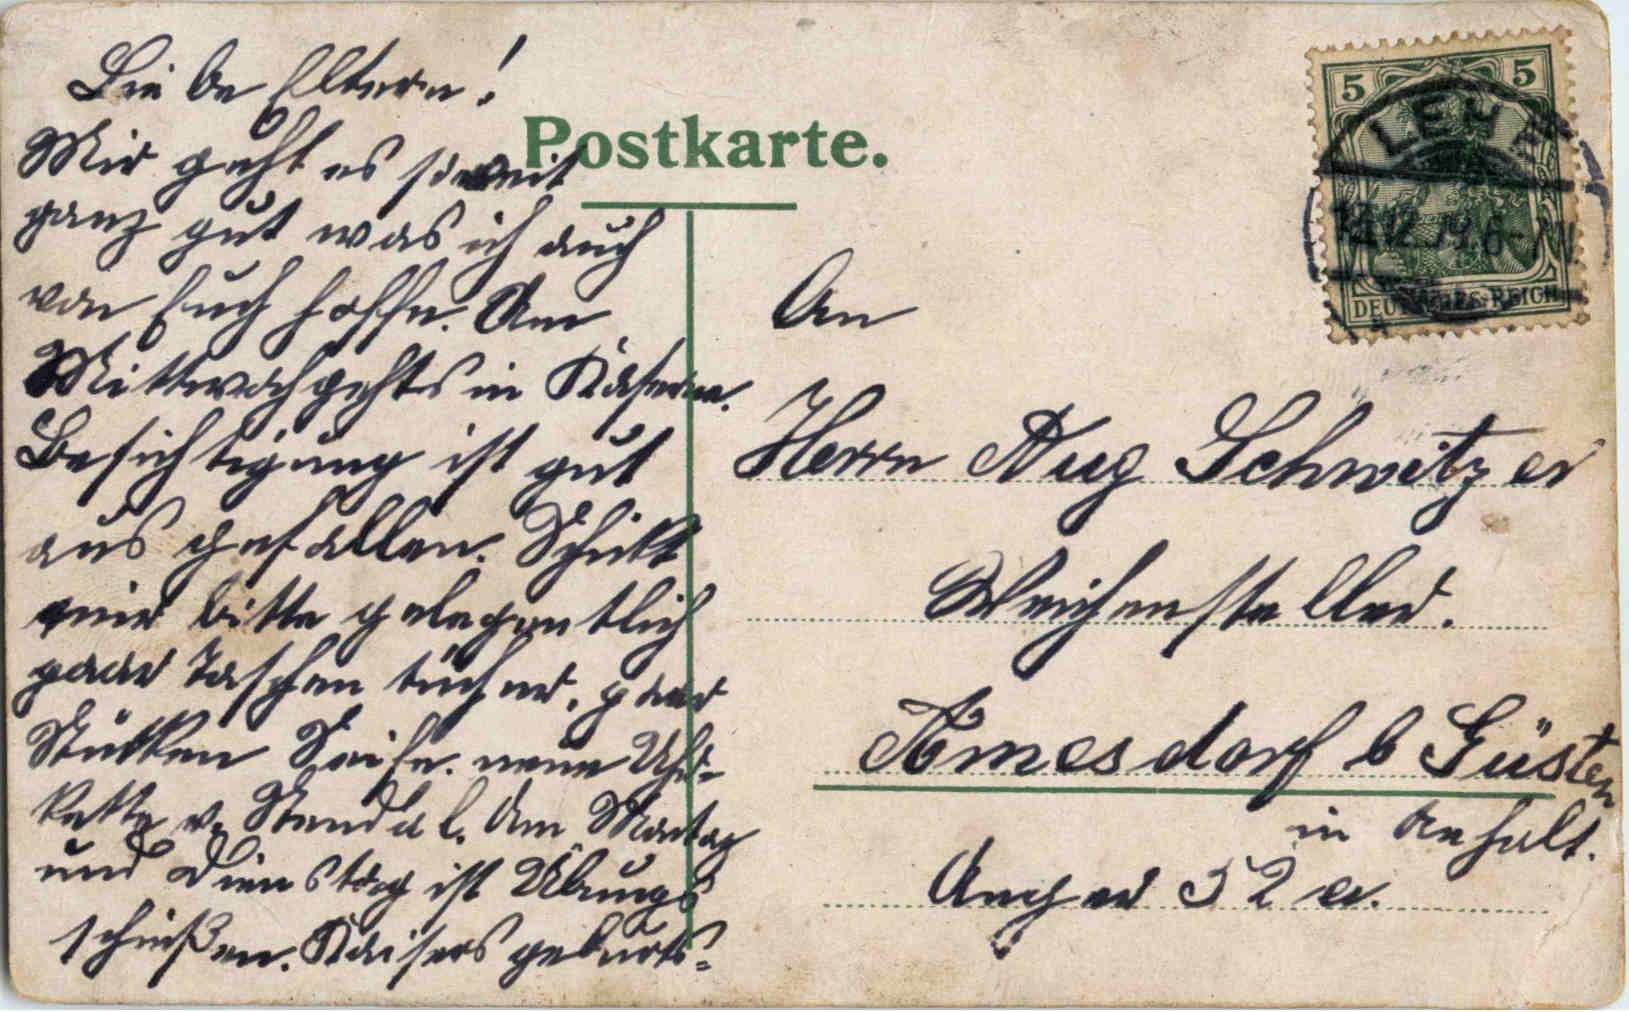 Liebe Eltern!
Mir geht es soweit
ganz gut was ich auch
von Euch hoffe. Am
Mittwoch gehts in Kaserne.
Besichtigung ist gut
aus gefallen. Schickt
mir bitte gelegentlich
paar Taschentücher, paar
Stücken Seife. neue Uhr-
kette v. Stendal. Am Montag
und Dienstag ist Übungs
schießen. Kaisersgeburts-
Postkarte.
5 5
LEHE
12.12.
6-7N
DEUTSCHES REICH
An
Herrn Aug Schwitzer
Weichensteller.
Amesdorf b Güsten
in Anhalt.
Anger 52 a.